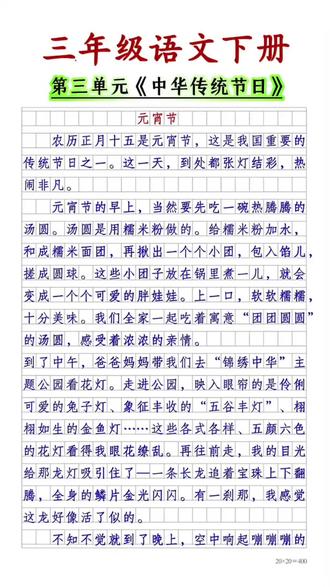 三年级语文下册
第三单元《中华传统节日》
元宵节
农历正月十五是元宵节，这是我国重要的
传统节日之一。这一天，到处都张灯结彩，热
闹非凡。
元宵节的早上，当然要先吃一碗热腾腾的
汤圆。汤圆是用糯米粉做的。给糯米粉加水，
和成糯米面团，再揪出一个个小团，包入馅儿，
搓成圆球。这些小团子放在锅里煮一儿，就会
变成一个个可爱的胖娃娃。上一口，软软糯糯，
十分美味。我们全家一起吃着寓意“团团圆圆”
的汤圆，感受着浓浓的亲情。
到了中午，爸爸妈妈带我们去“锦绣中华”主
题公园看花灯。走进公园，映入眼帘的是伶俐
可爱的兔子灯、象征丰收的“五谷丰灯”、栩
栩如生的金鱼灯……这些各式各样、五颜六色
的花灯看得我眼花缭乱。再往前走，我的目光
给那龙灯吸引住了—一条长龙追着宝珠上下翻
腾，全身的鳞片金光闪闪。有一刹那，我感觉
这龙好像活了似的。
不知不觉就到了晚上，空中响起嘣嘣嘣的
20×20=400